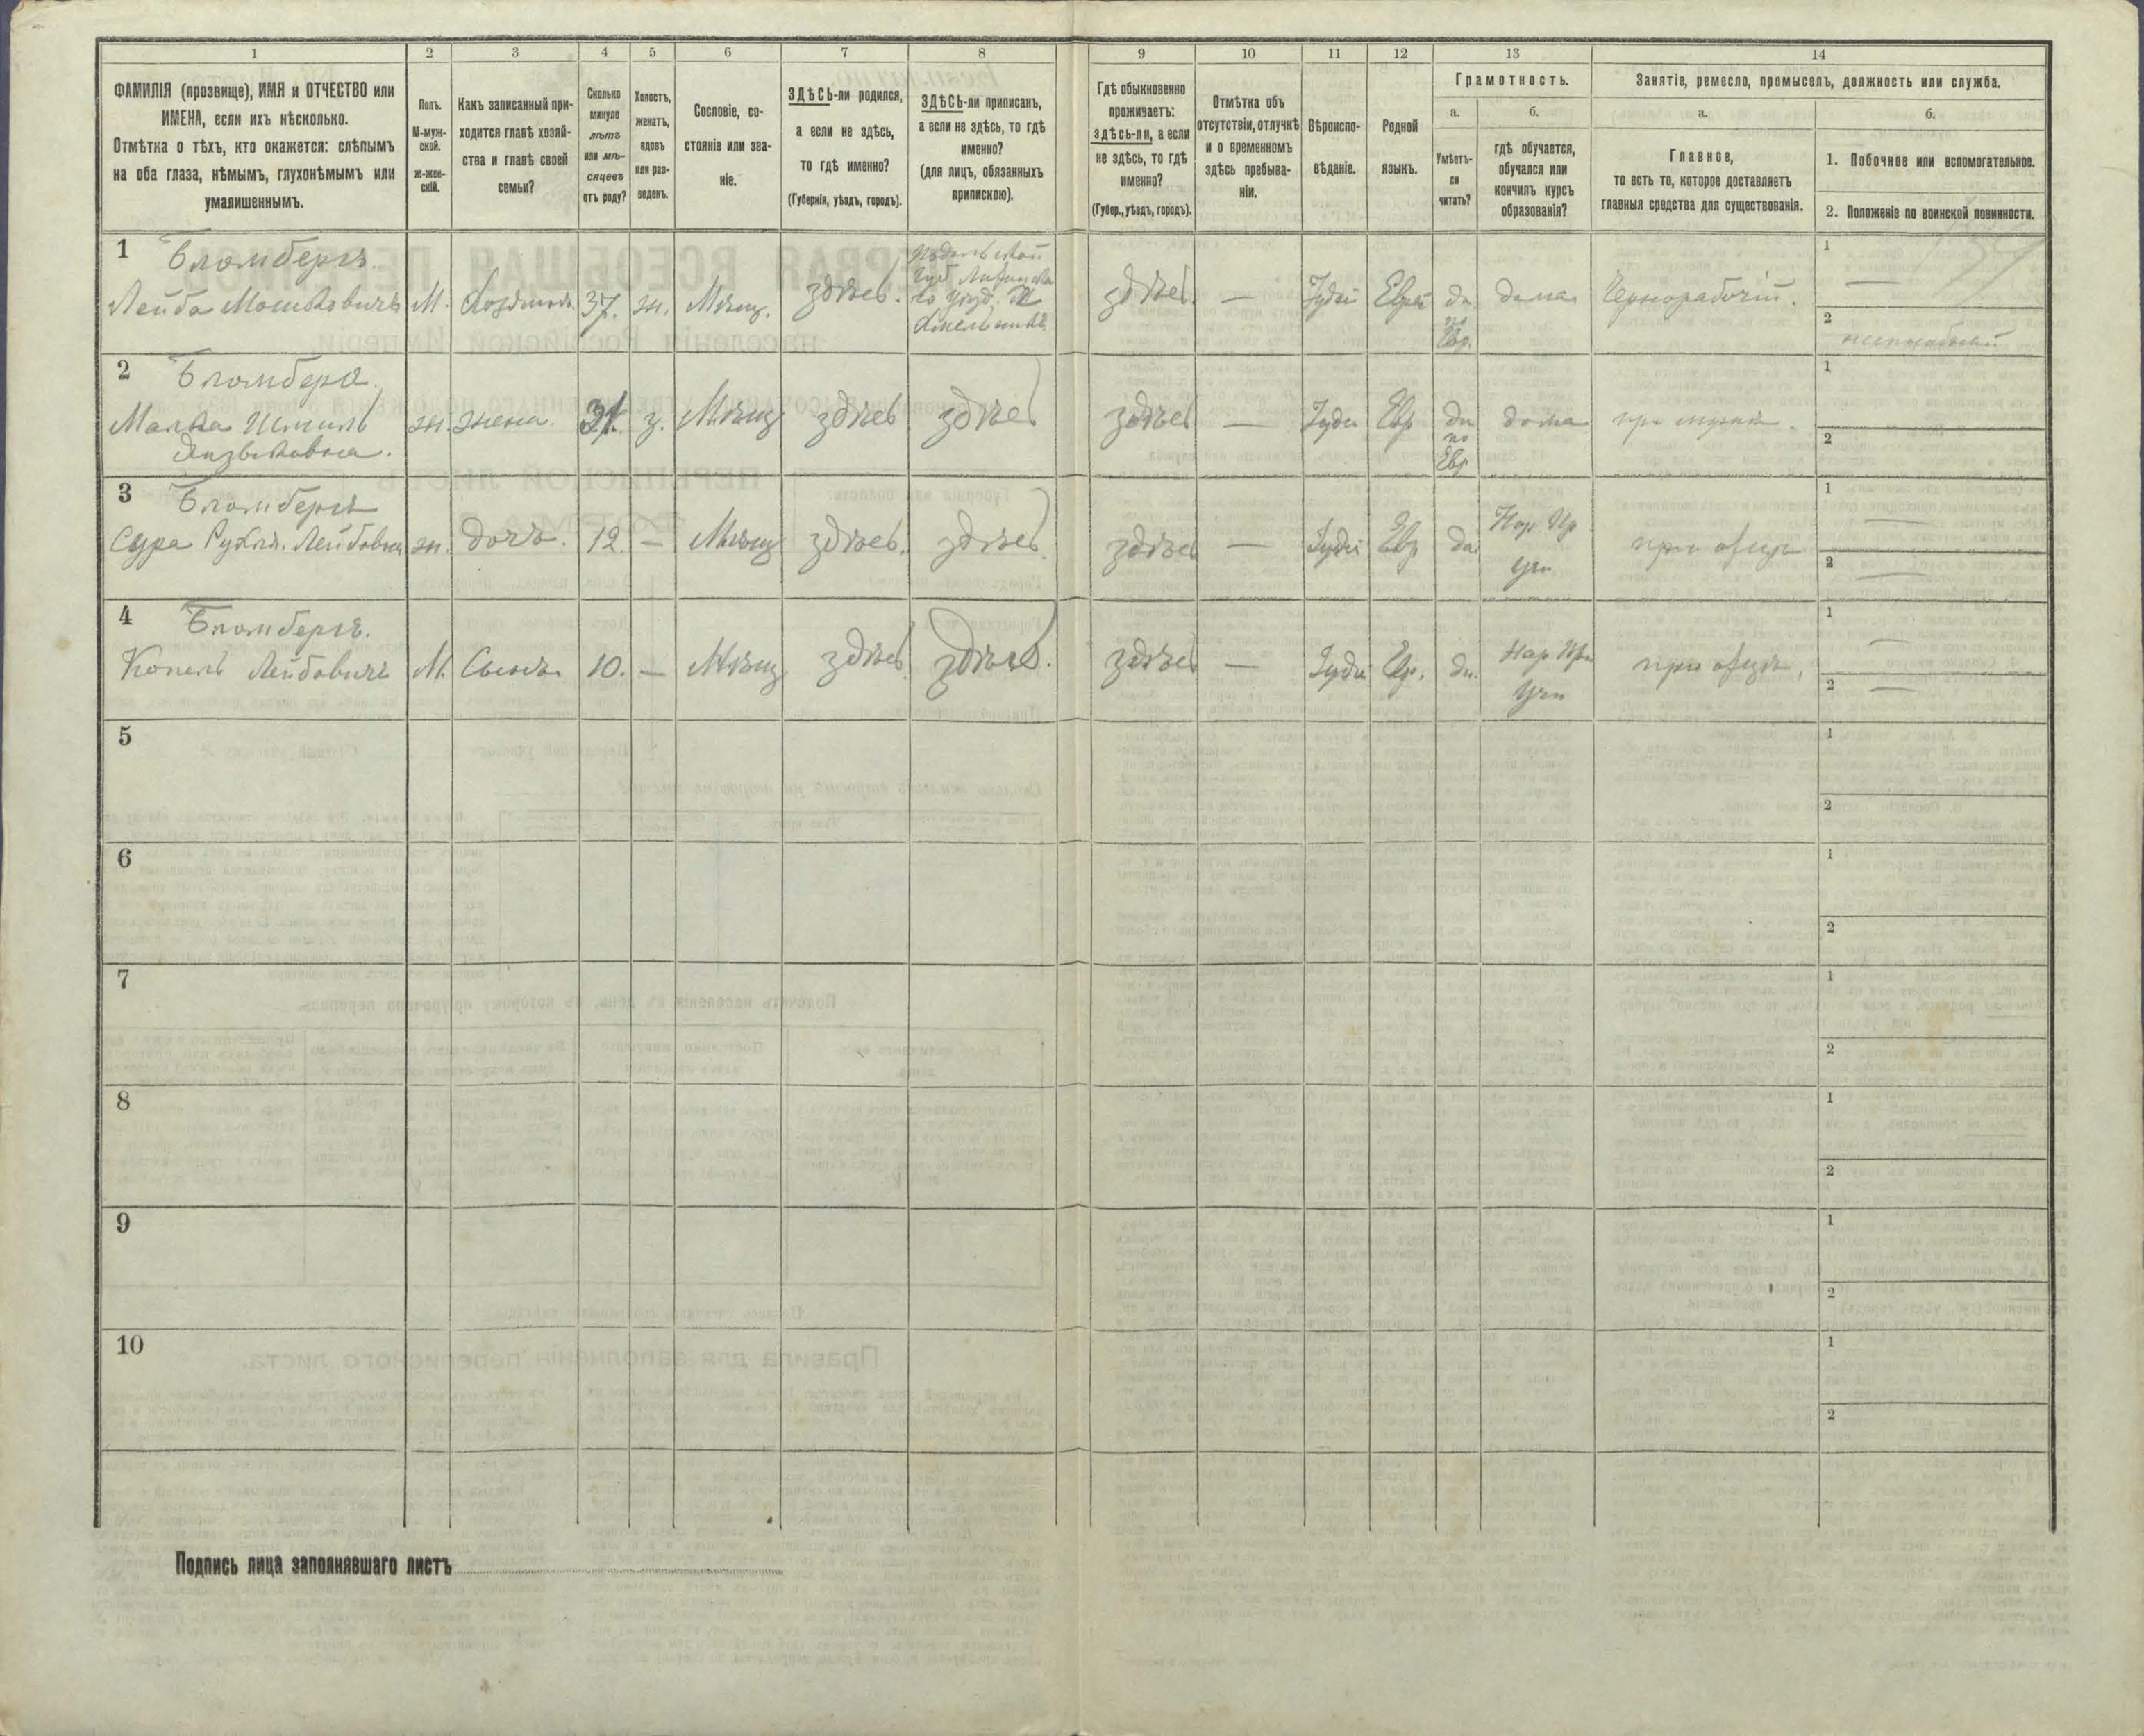 1 2 3 4 5 6 7 8 9 10 11 12 13 14
ФАМИЛІЯ (прозвище), ИМЯ и ОТЧЕСТВО или
ИМЕНА, если ихъ нѣсколько.
Отмѣтка о тѣхъ, кто окажется: слѣпымъ
на оба глаза, нѣмымъ, глухонѣмымъ или
умалишеннымъ.
Полъ.
М-муж-
ской.
Ж-жен-
скій.
Какъ записанный при-
ходится главѣ хозяй-
ства и главѣ своей
семьи?
Сколько
минуло
лѣтъ
или мѣ-
сяцевъ
отъ роду?
Холостъ,
женатъ,
вдовъ
или раз-
веденъ.
Сословіе, со-
стояніе или зва-
ніе.
ЗДѢСЬ-ли родился,
а если не здѣсь,
то гдѣ именно?
(Губернія, уѣздъ, городъ).
ЗДѢСЬ-ли приписанъ,
а если не здѣсь, то гдѣ
именно?
(для лицъ, обязанныхъ
припискою).
Гдѣ обыкновенно
проживаетъ:
здѣсь-ли, а если
не здѣсь, то гдѣ
именно?
(Губер., уѣздъ, городъ).
Отмѣтка объ
отсутствіи, отлучкѣ
и о временномъ
здѣсь пребыва-
ніи.
Вѣроиспо-
вѣданіе.
Родной
языкъ.
Грамотность.
а.
Умѣетъ-
ли
читать?
б.
гдѣ обучается,
обучался или
кончилъ курсъ
образованія?
Занятіе, ремесло, промыселъ, должность или служба.
а.
Главное,
то есть то, которое доставляетъ
главныя средства для существованія.
б.
1. Побочное или вспомогательное.
2. Положеніе по воинской повинности.
1 Бломбергъ.
Лейба Мошковичъ М. Хозяинъ. 37. ж. Мѣщ. здѣсь.
Подольской
Губ
Уѣзд.
Хмельникъ
здѣсь. — Іудей Еврей да
по
Евр.
дома Чернорабочій.
1 —
2
2 Бломберг
Малка
ж. жена. з. Мѣщ здѣсь здѣсь здѣсь — Іуди Евр да
по
Евр
дома при мужѣ.
1
2
3 Бломбергъ
Сура Рухля Лейбовна ж. дочь. 12. — Мѣщ здѣсь. здѣсь здѣсь — Іудей Евр да Нар
Учи
при отцѣ
1 —
2 —
4 Бломбергъ.
Копель Лейбовичъ М. Сынъ. 10. — Мѣщ здѣсь здѣсь. здѣсь — Іудей Евр. да. Нар
Учи
при отцѣ,
1 —
2 —
5 1
2
6 1
2
7 1
2
8 1
2
9 1
2
10 1
2
Подпись лица заполнявшаго листъ